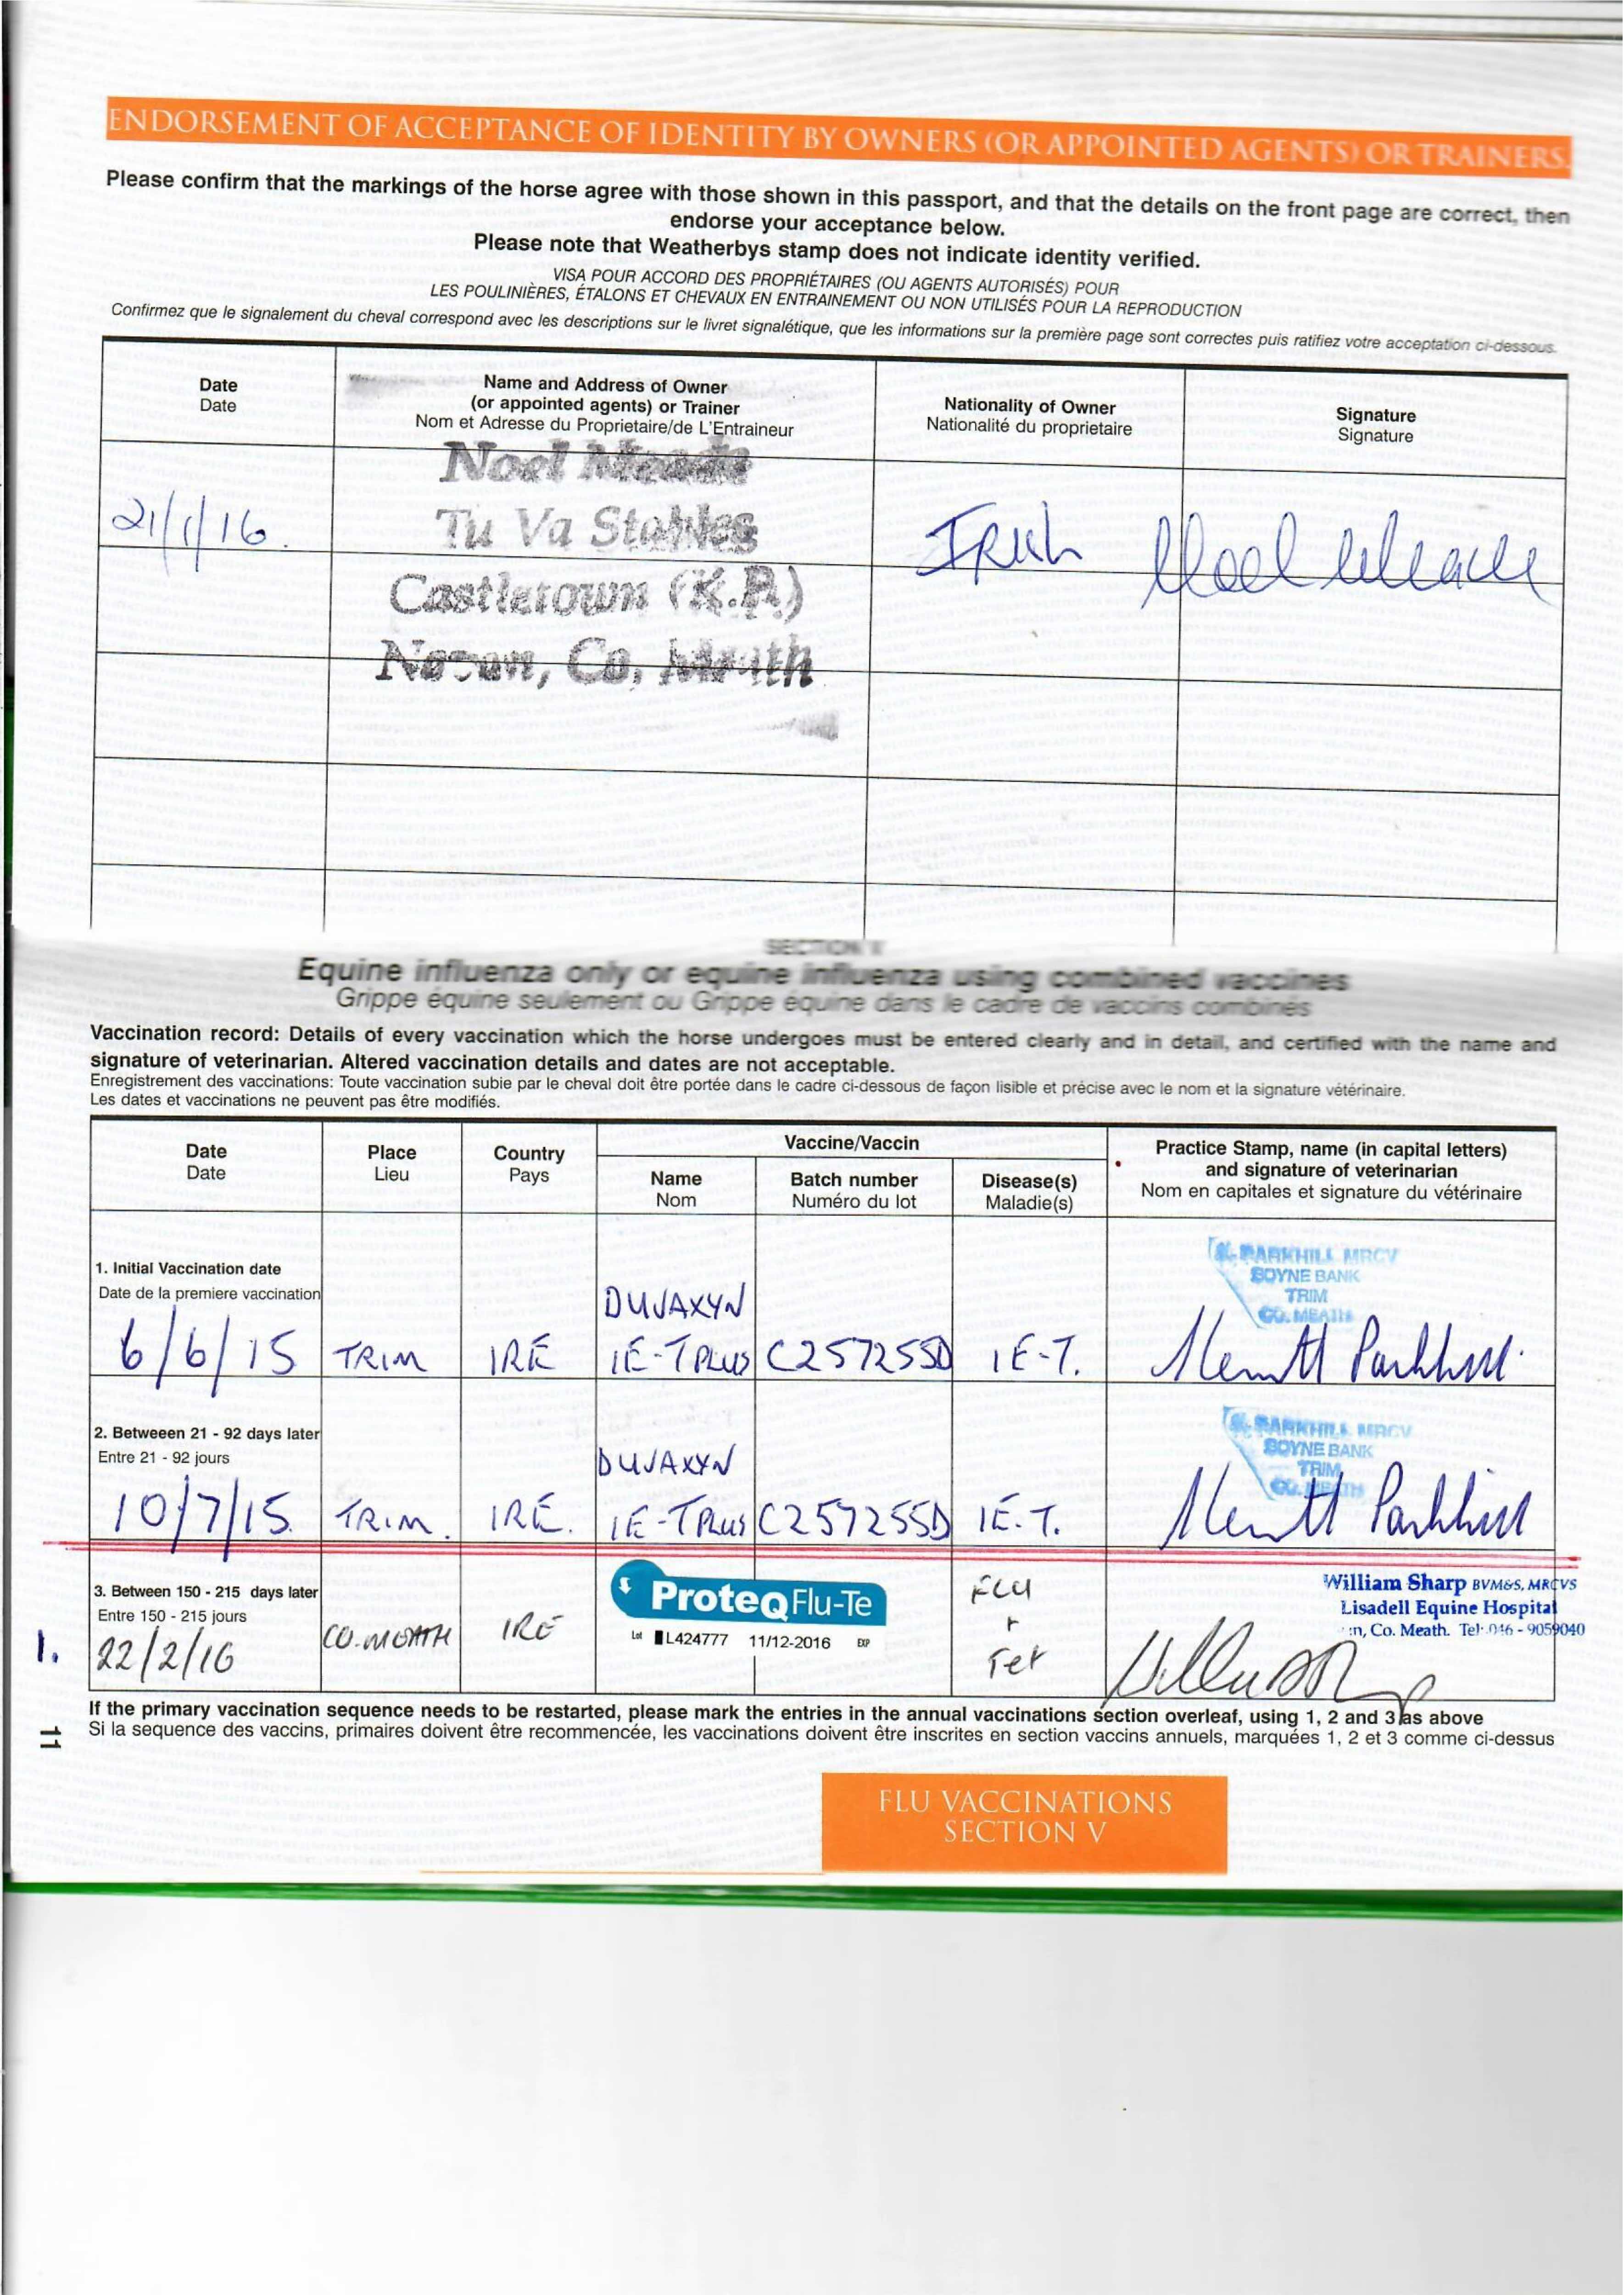 ENDORSEMENT OF ACCEPTANCE OF IDENTITY BY OWNERS (OR APPOINTED AGENTS) OR TRAINERS.
Please confirm that the markings of the horse agree with those shown in this passport, and that the details on the front page are correct, then
endorse your acceptance below.
Please note that Weatherbys stamp does not indicate identity verified.
VISA POUR ACCORD DES PROPRIÉTAIRES (OU AGENTS AUTORISÉS) POUR
LES POULINIÈRES, ÉTALONS ET CHEVAUX EN ENTRAINEMENT OU NON UTILISÉS POUR LA REPRODUCTION
Confirmez que le signalement du cheval correspond avec les descriptions sur le livret signalétique, que les informations sur la première page sont correctes puis ratifiez votre acceptation ci-dessous.
Date
Date
Name and Address of Owner
(or appointed agents) or Trainer
Nom et Adresse du Proprietaire/de L'Entraineur
Nationality of Owner
Nationalité du proprietaire
Signature
Signature
21/1/16.
Noel Meade
Tu Va Stables
Castletown (K.P.)
Co. Meath
Irish
Noel Meade
SECTION V
Equine influenza only or equine influenza using combined vaccines
Grippe équine seulement ou Grippe équine dans le cadre de vaccins combinés
Vaccination record: Details of every vaccination which the horse undergoes must be entered clearly and in detail, and certified with the name and
signature of veterinarian. Altered vaccination details and dates are not acceptable.
Enregistrement des vaccinations: Toute vaccination subie par le cheval doit être portée dans le cadre ci-dessous de façon lisible et précise avec le nom et la signature vétérinaire.
Les dates et vaccinations ne peuvent pas être modifiés.
Date
Date
Place
Lieu
Country
Pays
Vaccine/Vaccin
Name
Nom
Batch number
Numéro du lot
Disease(s)
Maladie(s)
Practice Stamp, name (in capital letters)
and signature of veterinarian
Nom en capitales et signature du vétérinaire
1. Initial Vaccination date
Date de la premiere vaccination
6/6/15 TRIM IRE
DUVAXYN
IE-T PLUS C257255D IE-T.
PARKHILL MRCV
BOYNE BANK
TRIM
CO. MEATH
Parkhill
2. Betweeen 21 - 92 days later
Entre 21 - 92 jours
10/7/15. TRIM. IRE.
DUVAXYN
IE-T PLUS C257255D IE.T.
PARKHILL MRCV
BOYNE BANK
TRIM
CO. MEATH
Parkhill
3. Between 150 - 215 days later
Entre 150 - 215 jours
1. 22/2/16 CO.MEATH IRE
ProteqFlu-Te
Lot L424777 11/12-2016 EXP
FLU
+
Tet
William Sharp BVM&S, MRCVS
Lisadell Equine Hospital
n, Co. Meath. Tel: 046 - 9059040
If the primary vaccination sequence needs to be restarted, please mark the entries in the annual vaccinations section overleaf, using 1, 2 and 3 as above
Si la sequence des vaccins, primaires doivent être recommencée, les vaccinations doivent être inscrites en section vaccins annuels, marquées 1, 2 et 3 comme ci-dessus
11
FLU VACCINATIONS
SECTION V